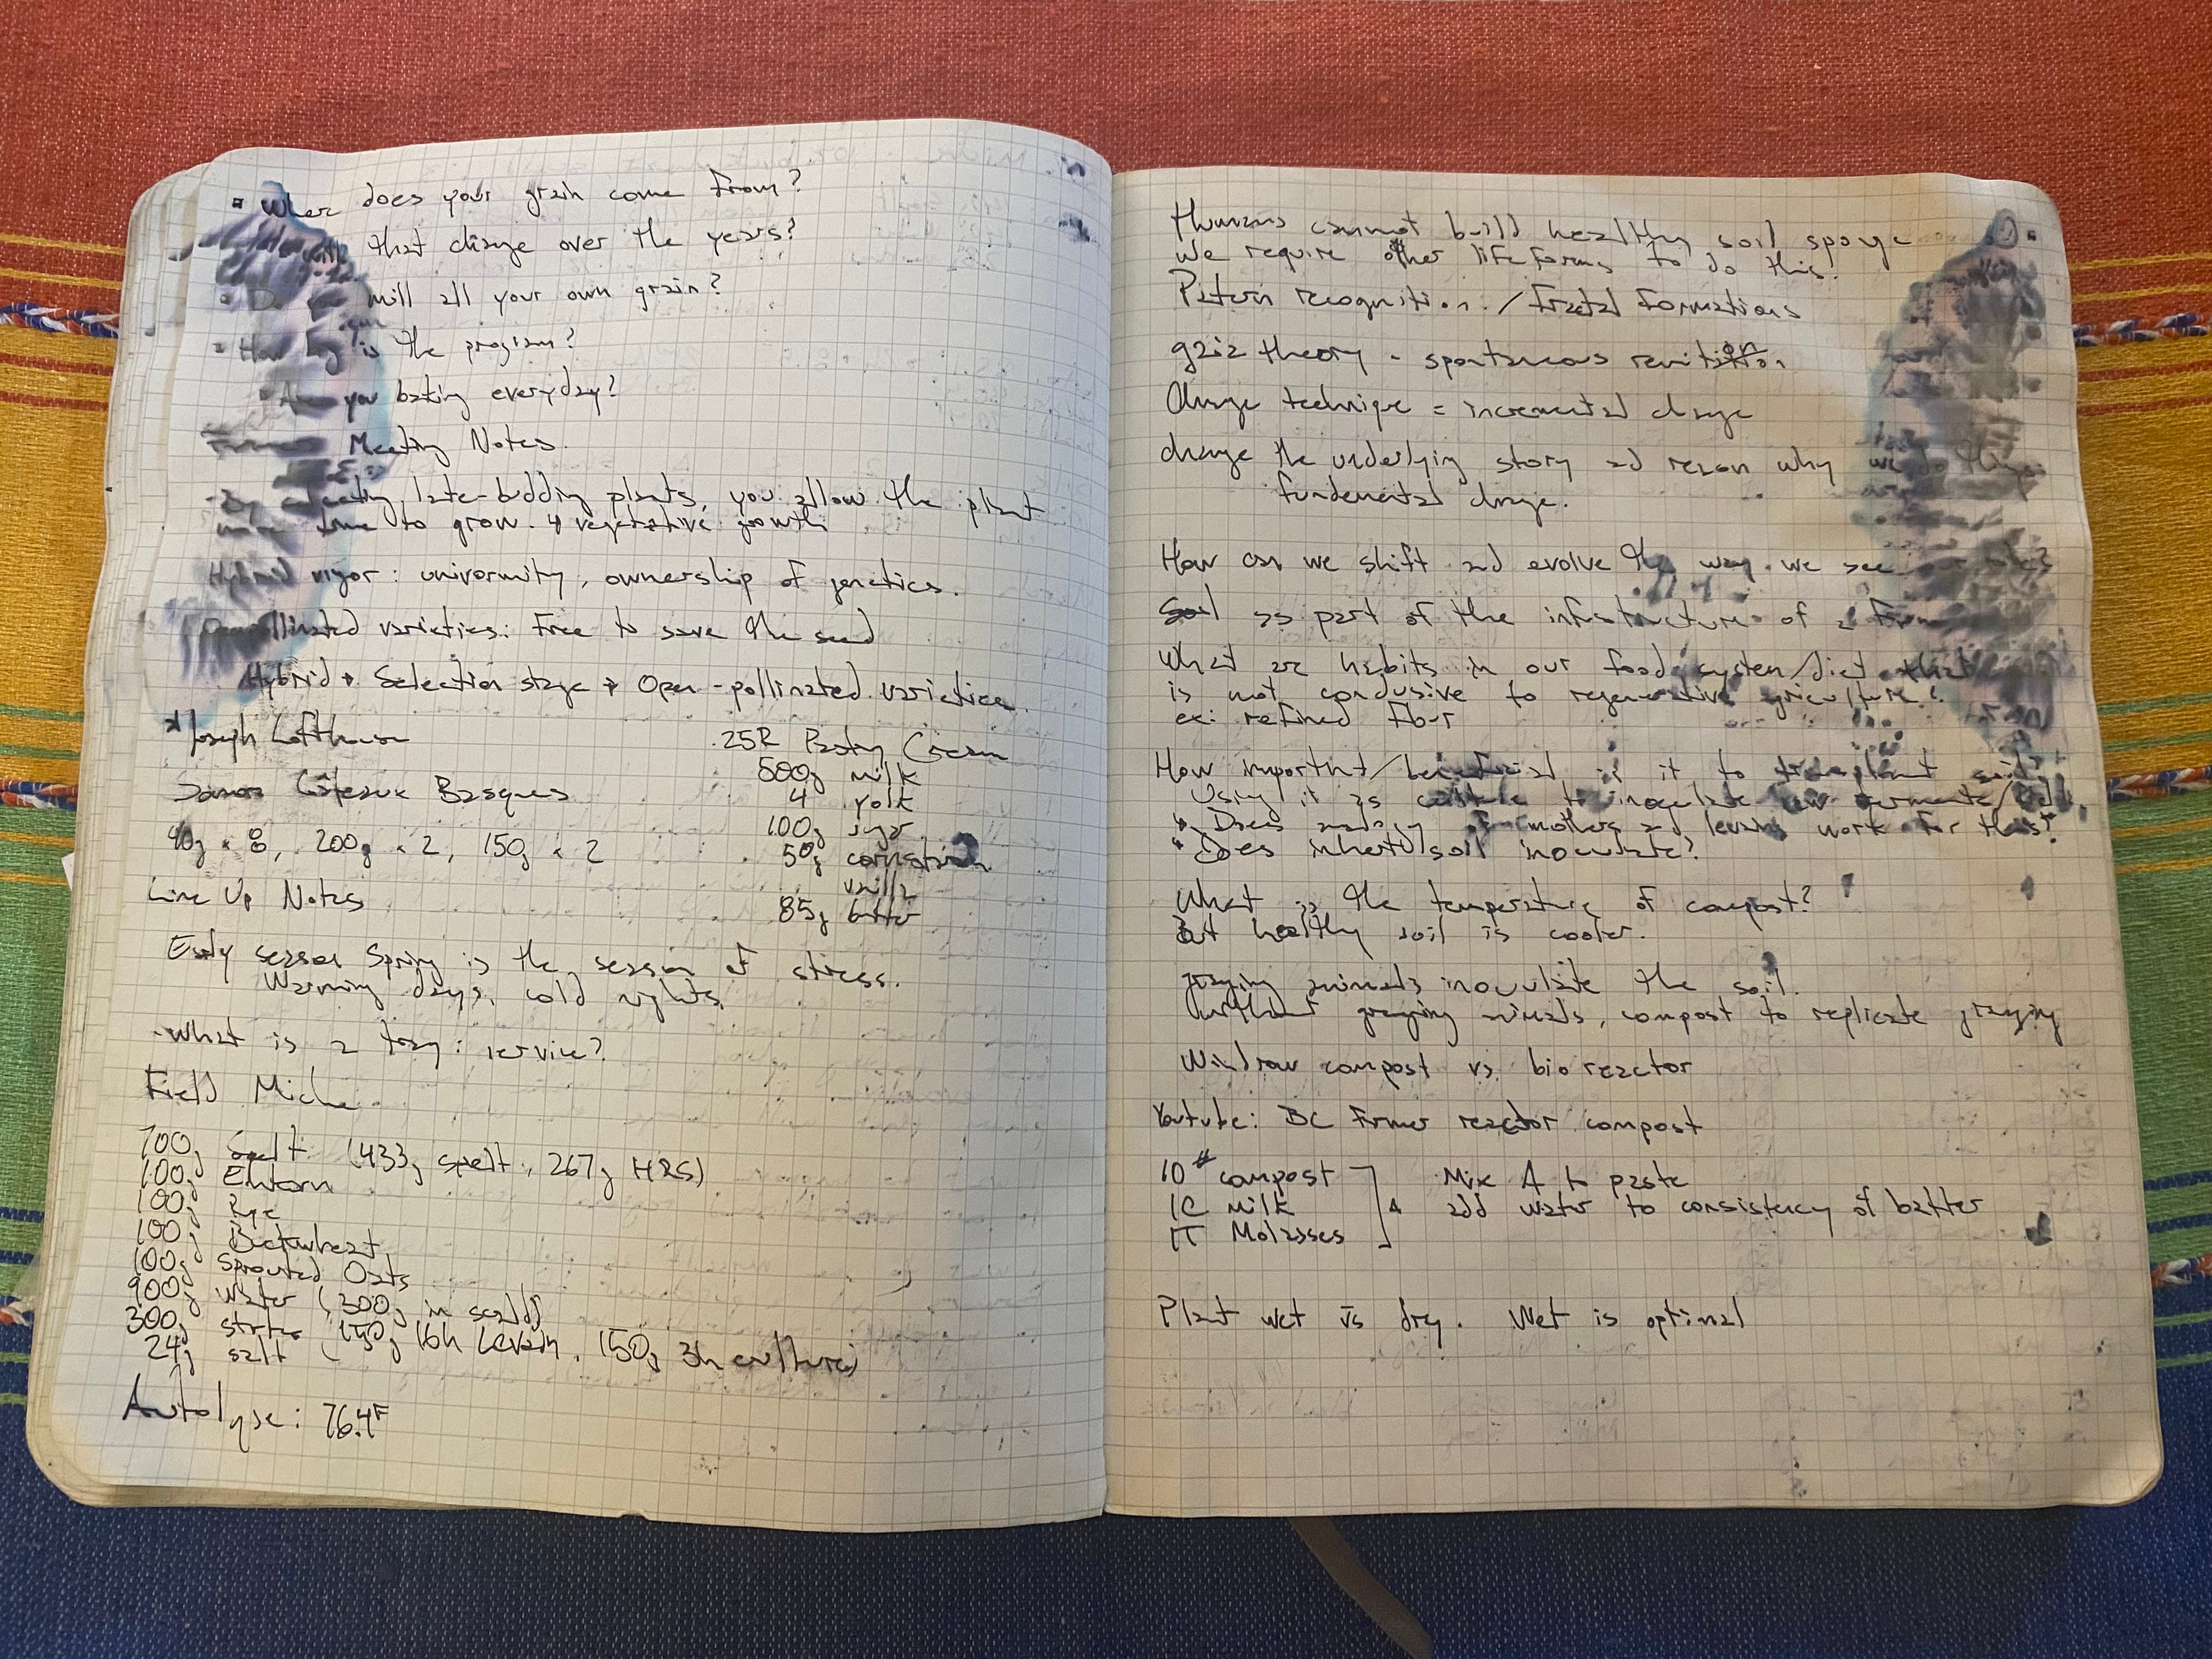 Where does your grain come from?
that change over the years?
mill all your own grain?
is the program?
you baking everyday?
Meeting Notes.
late-budding plants, you allow the plant
time to grow. vegetative growth
Hybrid vigor: univormity, ownership of genetics.
varieties: Free to save the seed
Hybrid → Selection stage → Open-pollinated varieties.
*Joseph Lofthouse
Gâteaux Basques
40g x 8, 200g x 2, 150g x 2
.25R Pastry Cream
500g milk
4 yolk
100g sugar
50g cornstarch
vanilla
85g butter
Line Up Notes
Early season Spring is the season of stress.
Warming days, cold nights.
-What is a tray: service?
Field Miche
700g Spelt (433g spelt, 267g HRS)
100g Einkorn
100g Rye
100g Buckwheat
100g Sprouted Oats
900g Water (300g in scald)
300g starter (150g 16h Levain, 150g 3h culture)
24g salt
Autolyse: 76.4F
Humans cannot build healthy soil sponge
we require other lifeforms to do this.
Patern recognition / Fractal Formations
gaia theory - spontaneous
Change technique = incremental change
change the underlying story and reason why we do things
fundemental change.
How can we shift and evolve the way we see
Soil as part of the infrastructure of a
What are habits in our food system/diet that
is not condusive to regenerative agriculture?
ex: refined flour
How important/beneficial is it to transplant soil?
Using it as to inoculate new
Does of mothers and levains work for this?
Does soil inoculate?
What is the temperature of compost?
But healthy soil is cooler.
grazing animals inoculate the soil.
Without grazing animals, compost to replicate grazing
Windrow compost vs bio reactor
Youtube: BC Farmer reactor compost
10# compost
1C Milk
1T Molasses
Mix A to paste
add water to consistency of batter
Plant wet vs dry. Wet is optimal